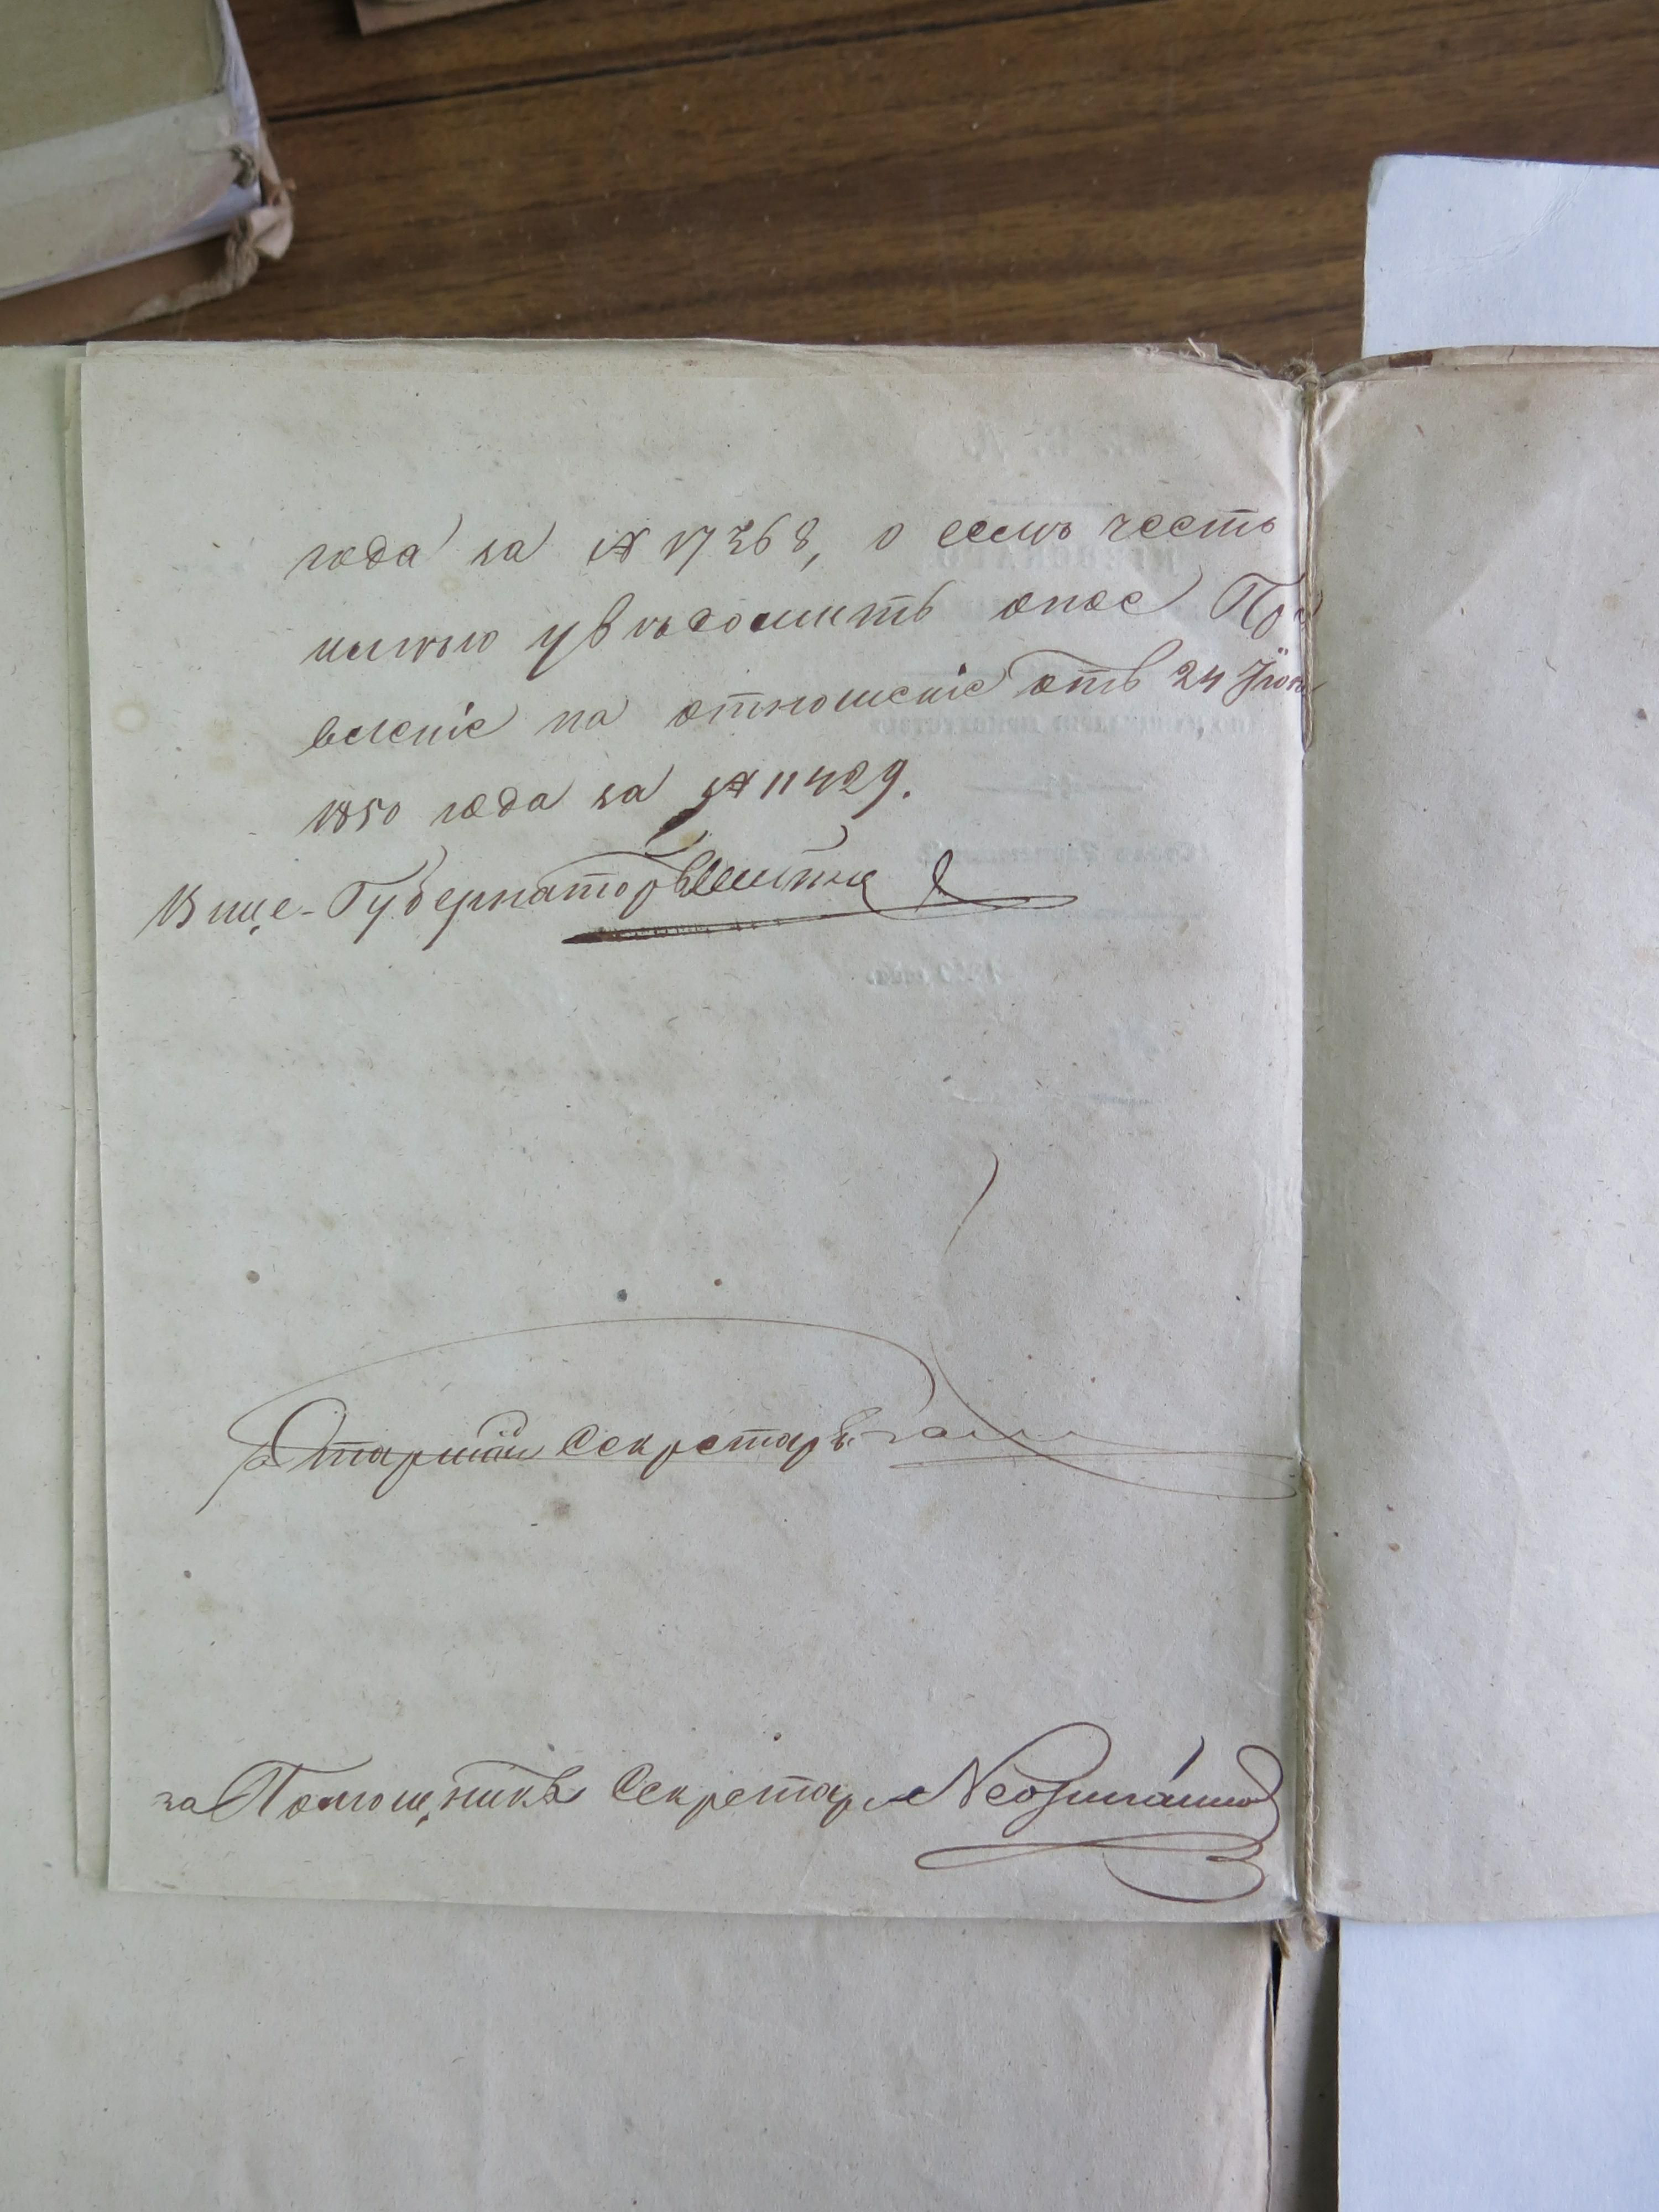 года за № 17368, о семъ честь
имѣю увѣдомить оное Пра
вленіе на отношеніе отъ 24 Іюня
1850 года за № 11429.
Вице-Губернаторъ
Старшій Секретарь
за Помощника Секретаря